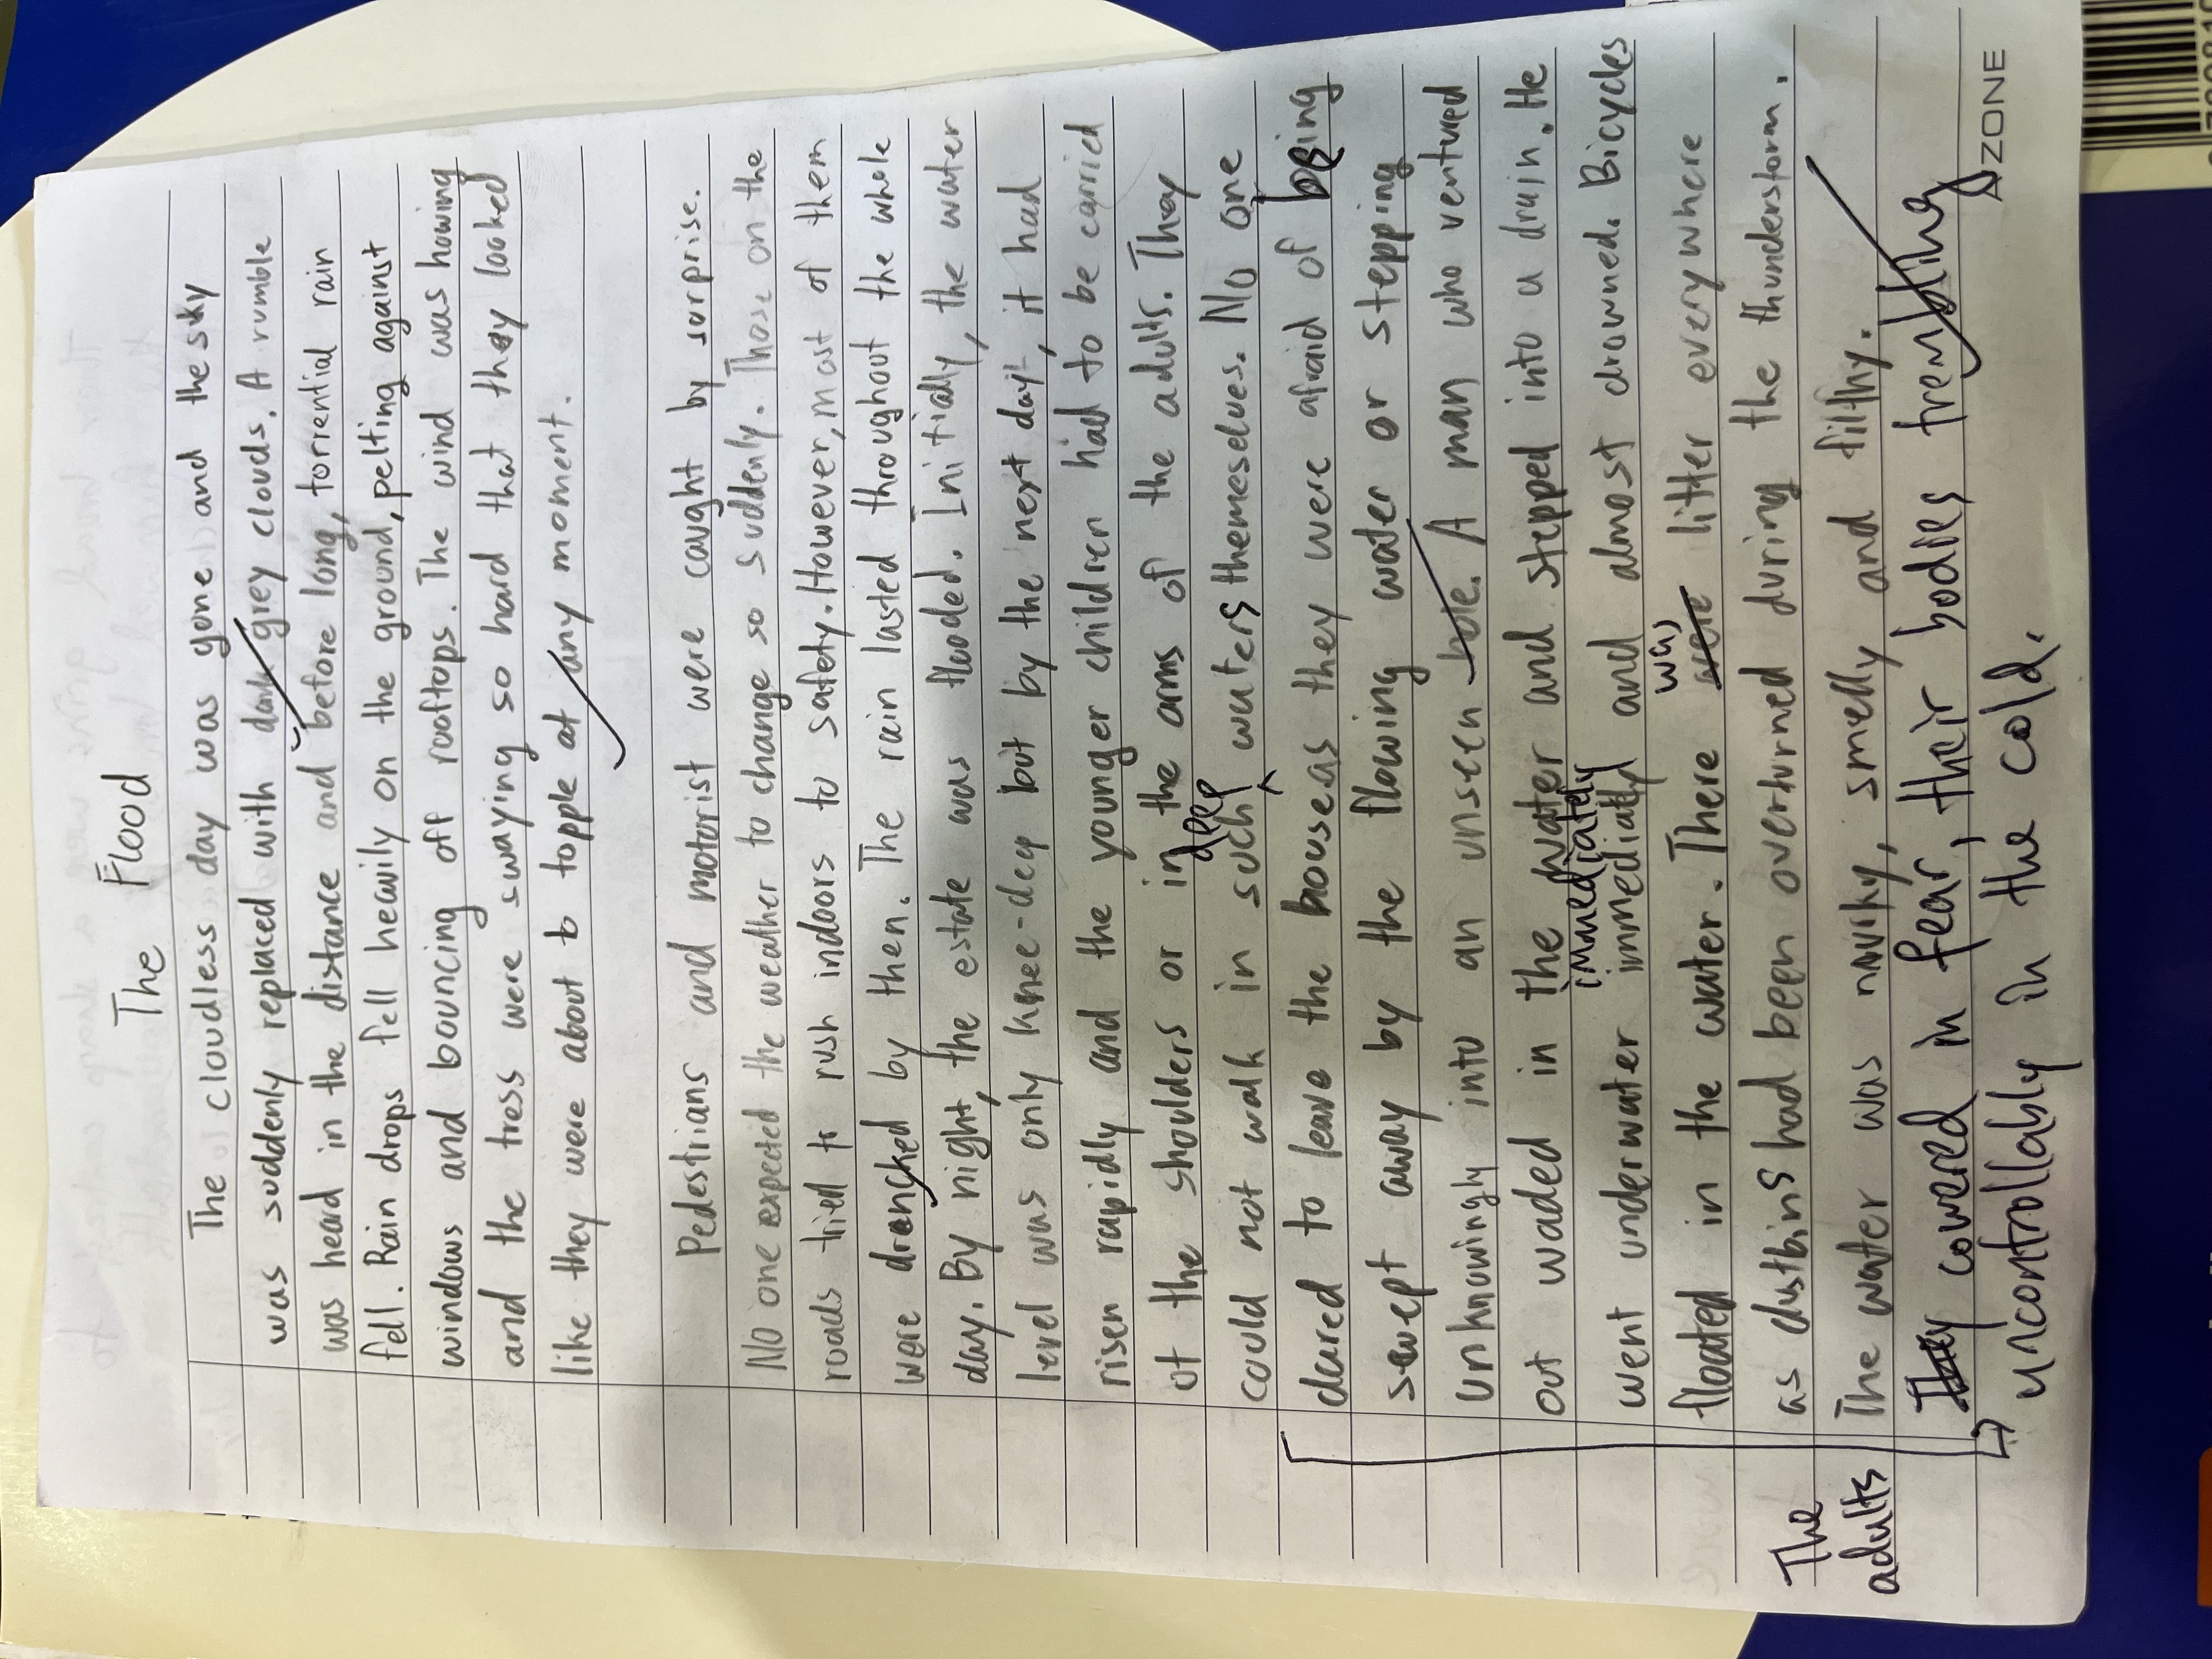 The Flood
The cloudless day was gone and the sky
was suddenly replaced with dark grey clouds. A rumble
was heard in the distance and before long, torrential rain
fell. Rain drops fell heavily on the ground, pelting against
windows and bouncing off rooftops. The wind was howing
and the tress were swaying so hard that they looked
like they were about to topple at any moment.
Pedestrians and motorist were caught by surprise.
No one expected the weather to change so suddenly. Those on the
roads tried to rush indoors to safety. However, most of them
were drencked by then. The rain lasted throughout the whole
day. By night, the estate was flooded. Initially, the water
level was only knee-deep but by the next day, it had
risen rapidly and the younger children had to be carried
ot the shoulders or in the arms of the adults. They
could not walk in such deep waters themeselves. No one
dared to leave the house as they were afraid of being
swept away by the flowing water or stepping
unknowingly into an unseen hole. A man who ventured
out waded in the water and stepped into a drain. He
immediately
went underwater immediatly and almost drowned. Bicycles
floated in the water. There were was litter everywhere
as dustbins had been overturned during the thunderstorm.
The water was murky, smelly and filthy.
The adults
They cowered in fear, their bodies trembling
uncontrollably in the cold.
ZONE